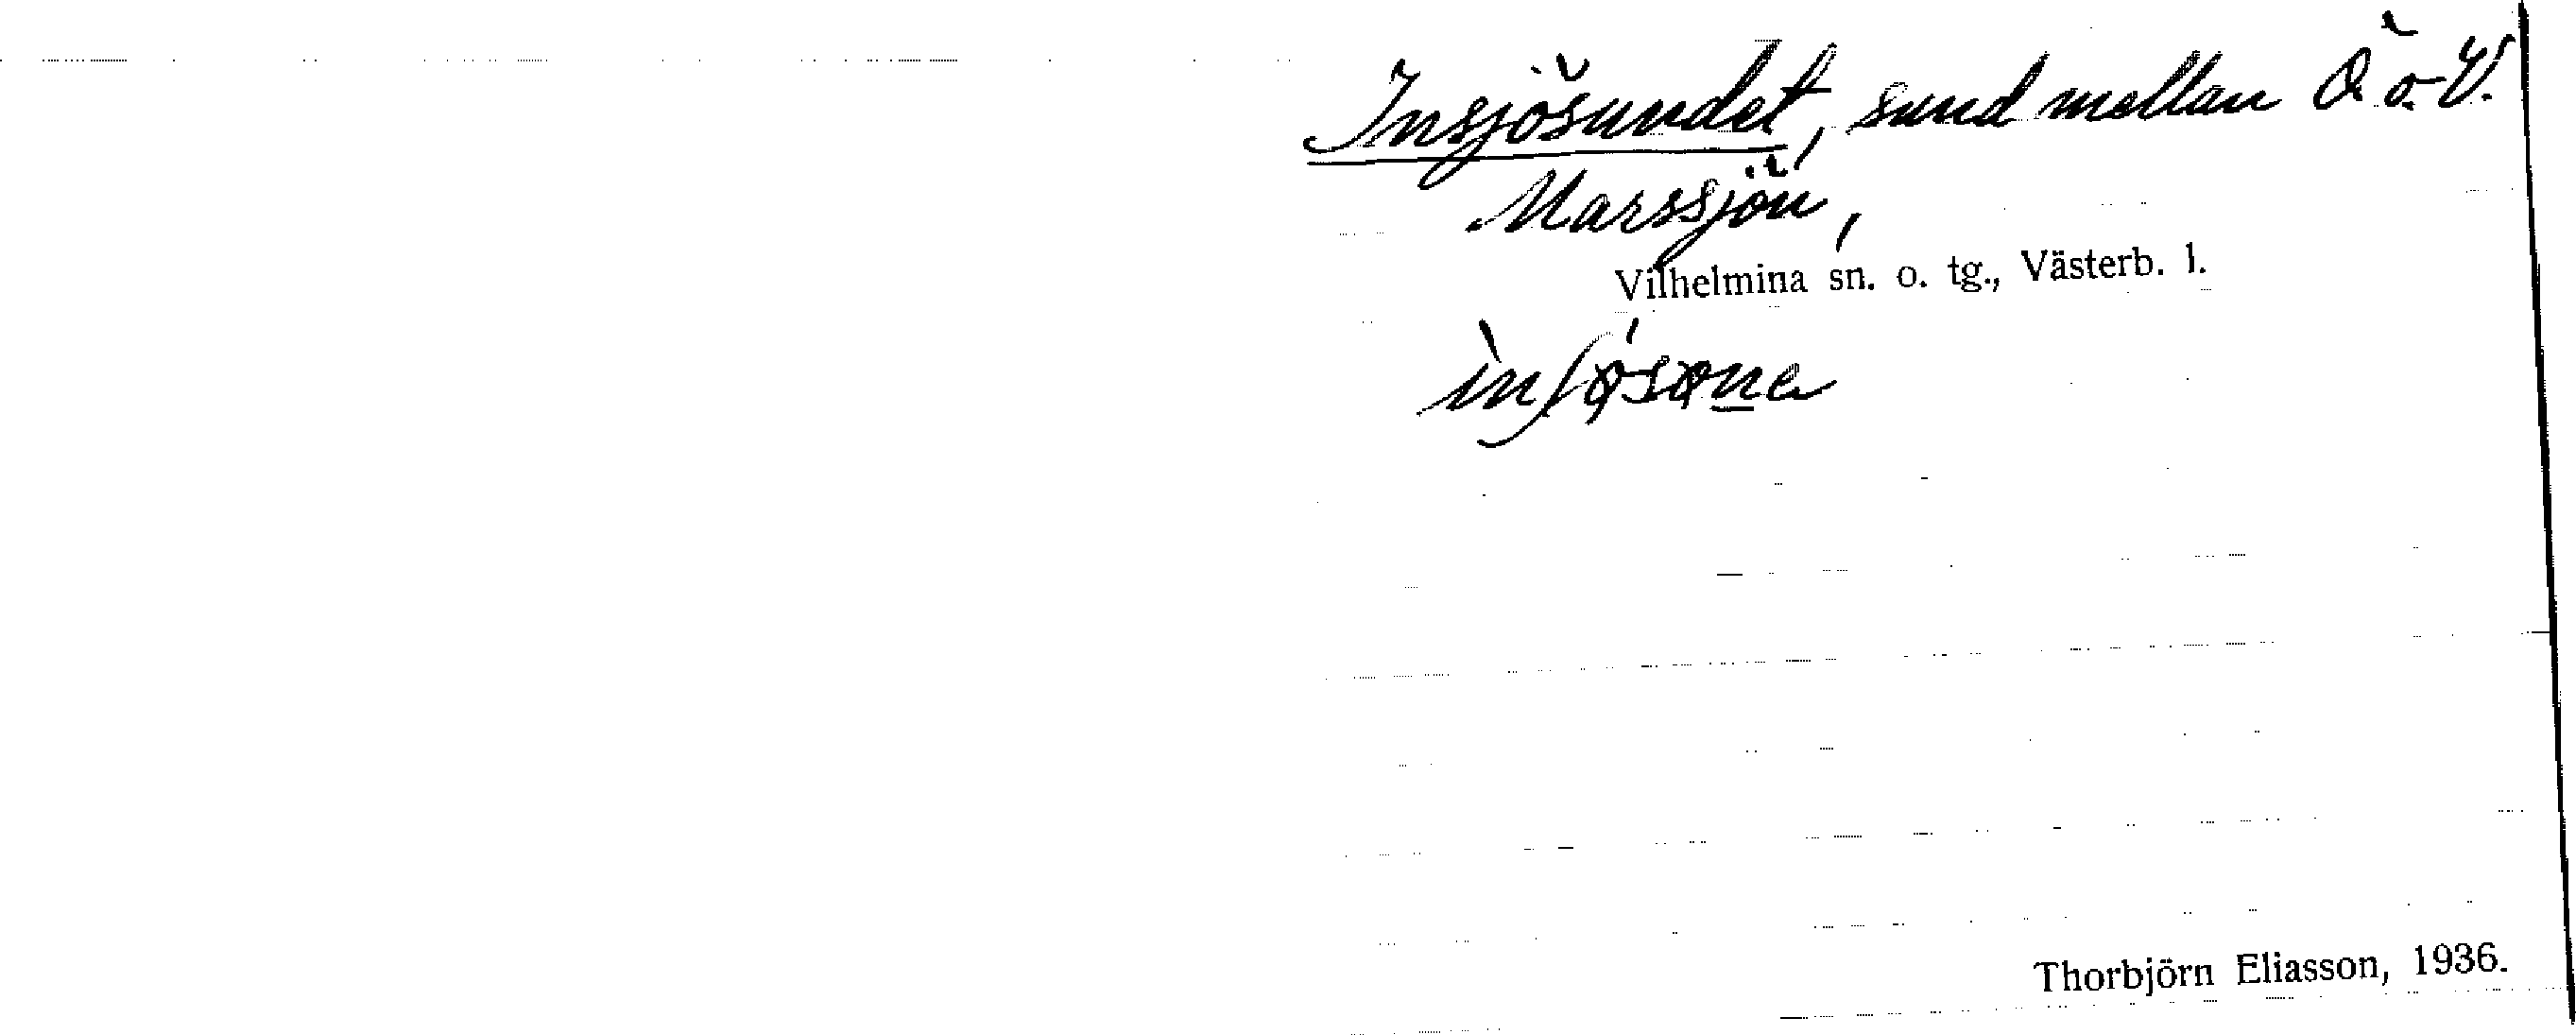 Insjösundet, sund mellan Ö. o. V.
Marssjön,
Vilhelmina sn. o. tg., Västerb. l.
Thorbjörn Eliasson, 1936.